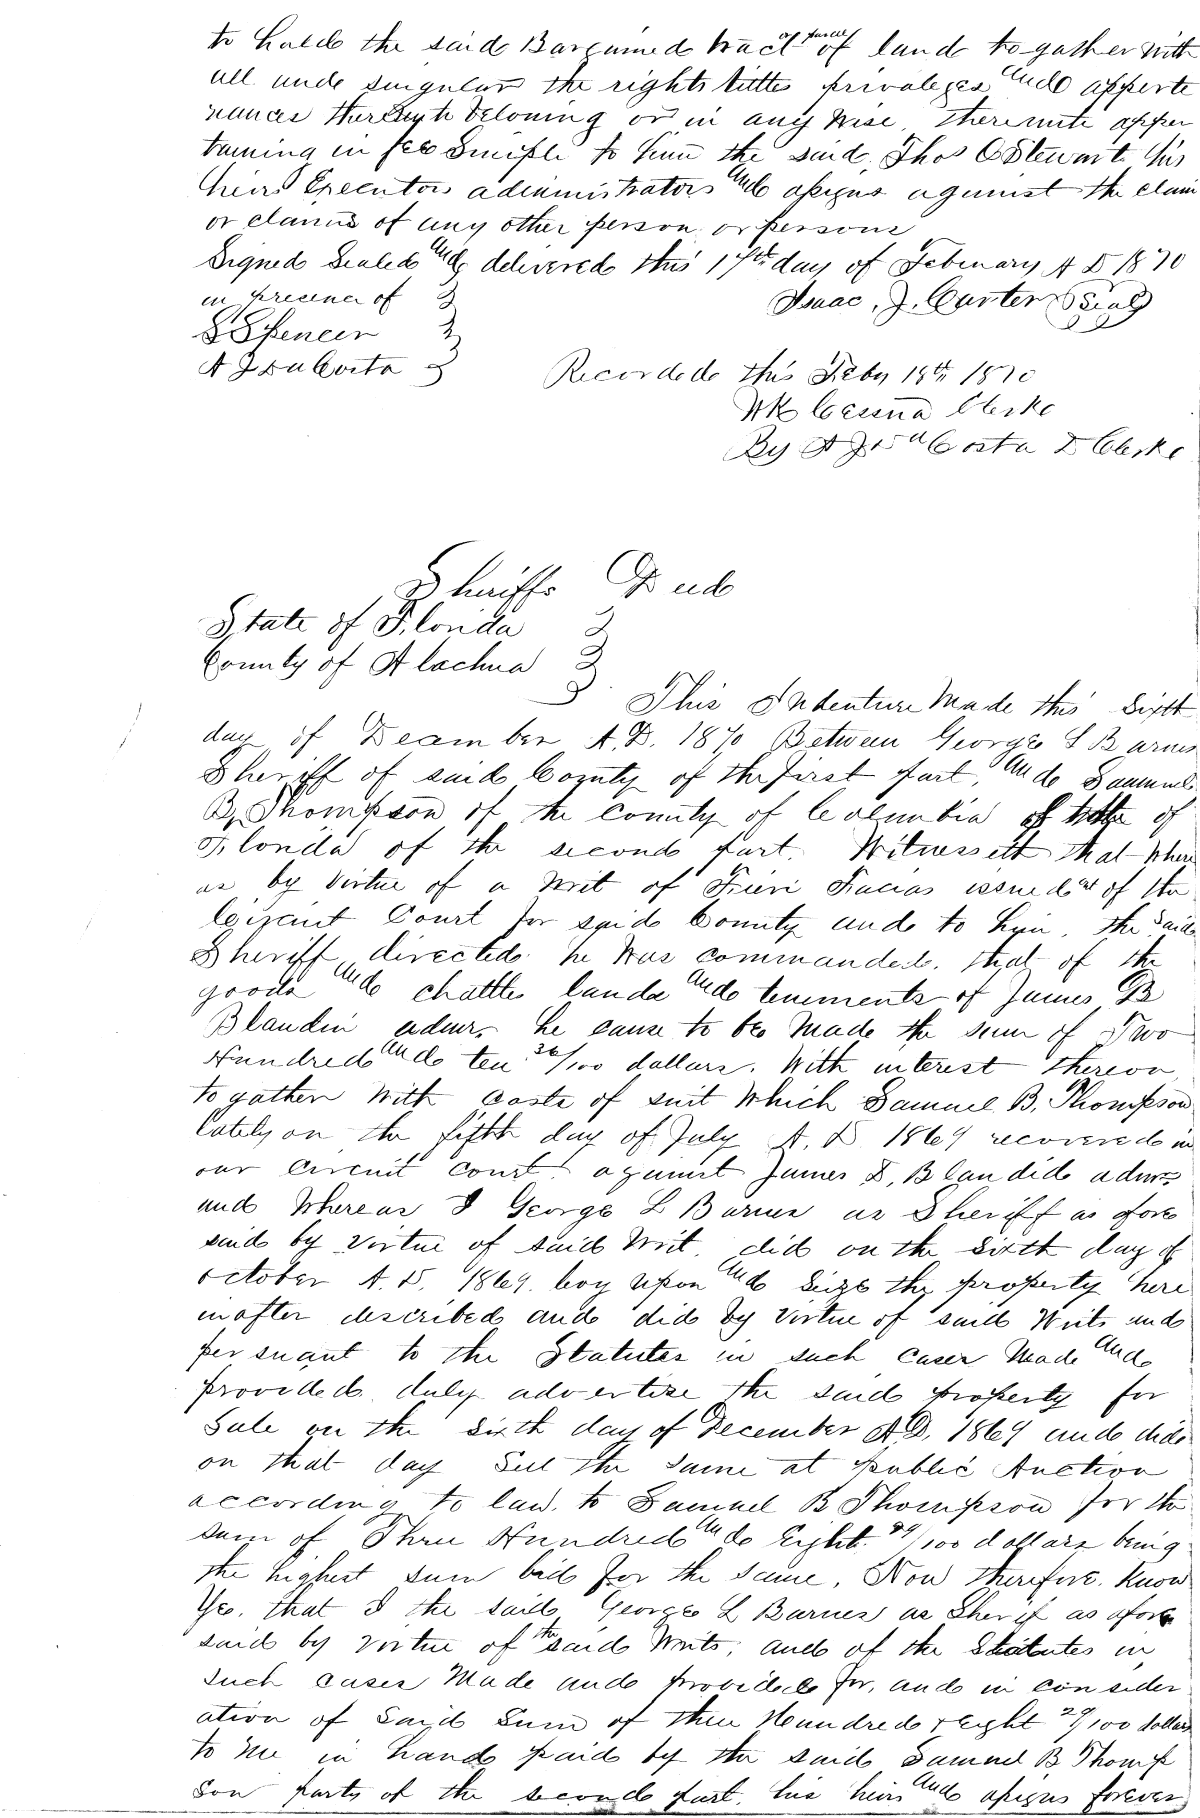 to hold the said Bargained tract or parcel of land to gather with
all and singular the rights tittles privaleges and apperte
nances thereunto beloning or in any wise thereunto apper
taining in fee Simple to him the said Thos C Stewart his
heirs Executors administrators and assigns against the claim
or claims of any other person or persons
Signed Sealed and delivered this 17th day of February A D 1870
in presence of Isaac. J. Carter Seal
S Spencer
A J DaCosta Recorded this Feby 18th 1870
WK Cessna Clerke
By A J DaCosta D Clerke
Sheriffs Deed
State of Florida
County of Alachua
This Indenture Made this Sixth
day of December A.D. 1870 Between George S Barnes
Sheriff of said County of the first part, and Sammuel
B, Thompson of the County of Columbia of
Florida of the second part. Witnesseth that Where
as by Virtue of a Writ of Fieri Facias issued out of the
Circuit Court for said County and to him, the said
Sheriff directed he was commanded. that of the
goods and chattles lands and tenements of James B
Blandin admr. he cause to be Made the sum of Two
Hundred and ten 36/100 dollars. With interest thereon
to gather With costs of suit Which Samuel B. Thompson
lately on the fifth day of July A. D 1869 recovered in
our Circuit Court against James D, Blandid admr
and Whereas I George L Barnes as Sheriff as afore
said by virtue of said Writ. did on the Sixth day of
october A. D. 1869. levy upon and Seize the property here
inafter described and did by Virtue of said Writs and
persuant to the Statutes in such cases Made and
provided. duly advertise the said property for
Sale on the Sixth day of December A.D. 1869 and did
on that day Sell the Same at public Auction
according to law. to Samuel B Thompson for the
sum of Three Hundred and Eight 29/100 dollars being
the highest sum bid for the same. Now therefore. Know
Ye. that I the said George L Barnes as Sherif as afore
said by virtue of the said Writs, and of the Statutes in
such cases Made and provided for, and in consider
ation of Said Sum of three Hundred + Eight 29/100 dollars
to me in hand paid by the said Samuel B Thomp
son party of the second part, his heirs and assigns forever